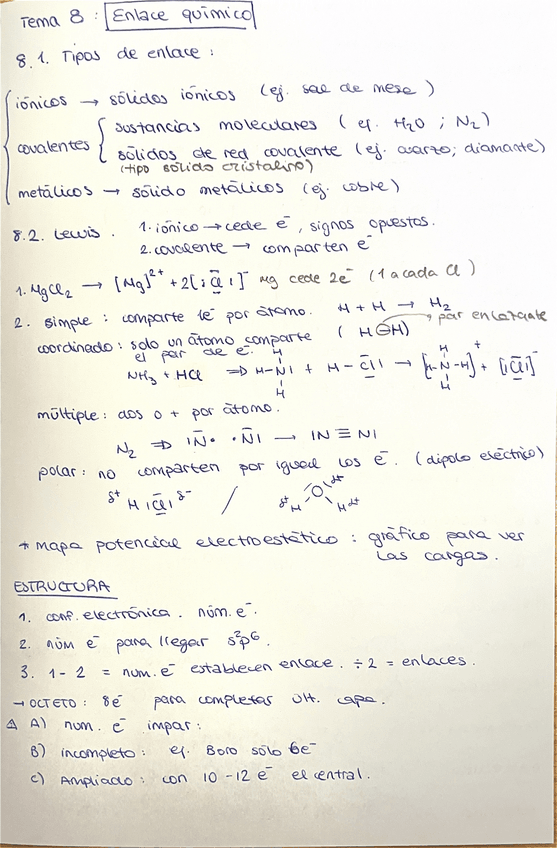 Tema 8 : Enlace químico
8.1. Tipos de enlace :
iónicos → sólidos iónicos (ej. sal de mesa)
covalentes { sustancias moleculares ( ej. H₂O ; N₂)
sólidos de red covalente (ej. cuarzo; diamante)
(tipo sólido cristalino)
metálicos → sólido metálicos (ej. cobre)
8.2. Lewis. 1. iónico → cede e⁻, signos opuestos.
2. covalente → comparten e⁻
1. MgCl₂ → [Mg]²⁺ + 2[¦Cl¦]⁻ Mg cede 2e⁻ (1 a cada Cl)
2. simple : comparte 1e⁻ por átomo. H + H → H₂
(H⊖H) → par enlazante
coordinado: solo un átomo comparte
el par de e⁻.
NH₃ + HCl ⇒ H-N| + H-Cl| → [H-N-H]⁺ + [|Cl|]⁻
múltiple: dos o + por átomo.
N₂ ⇒ |N• •N| → |N≡N|
polar: no comparten por igual los e⁻. (dipolo eléctrico)
δ⁺ H |Cl| δ⁻ / δ⁺ H O H δ⁺
* Mapa potencial electroestático : gráfico para ver
las cargas.
ESTRUCTURA
1. conf. electrónica. núm. e⁻.
2. núm e⁻ para llegar s²p⁶.
3. 1 - 2 = num. e⁻ establecen enlace. ÷2 = enlaces.
→ OCTETO : 8e⁻ para completar últ. capa.
△ A) num. e⁻ impar :
B) incompleto : ej. Boro sólo 6e⁻
C) Ampliado : con 10 -12 e⁻ el central.